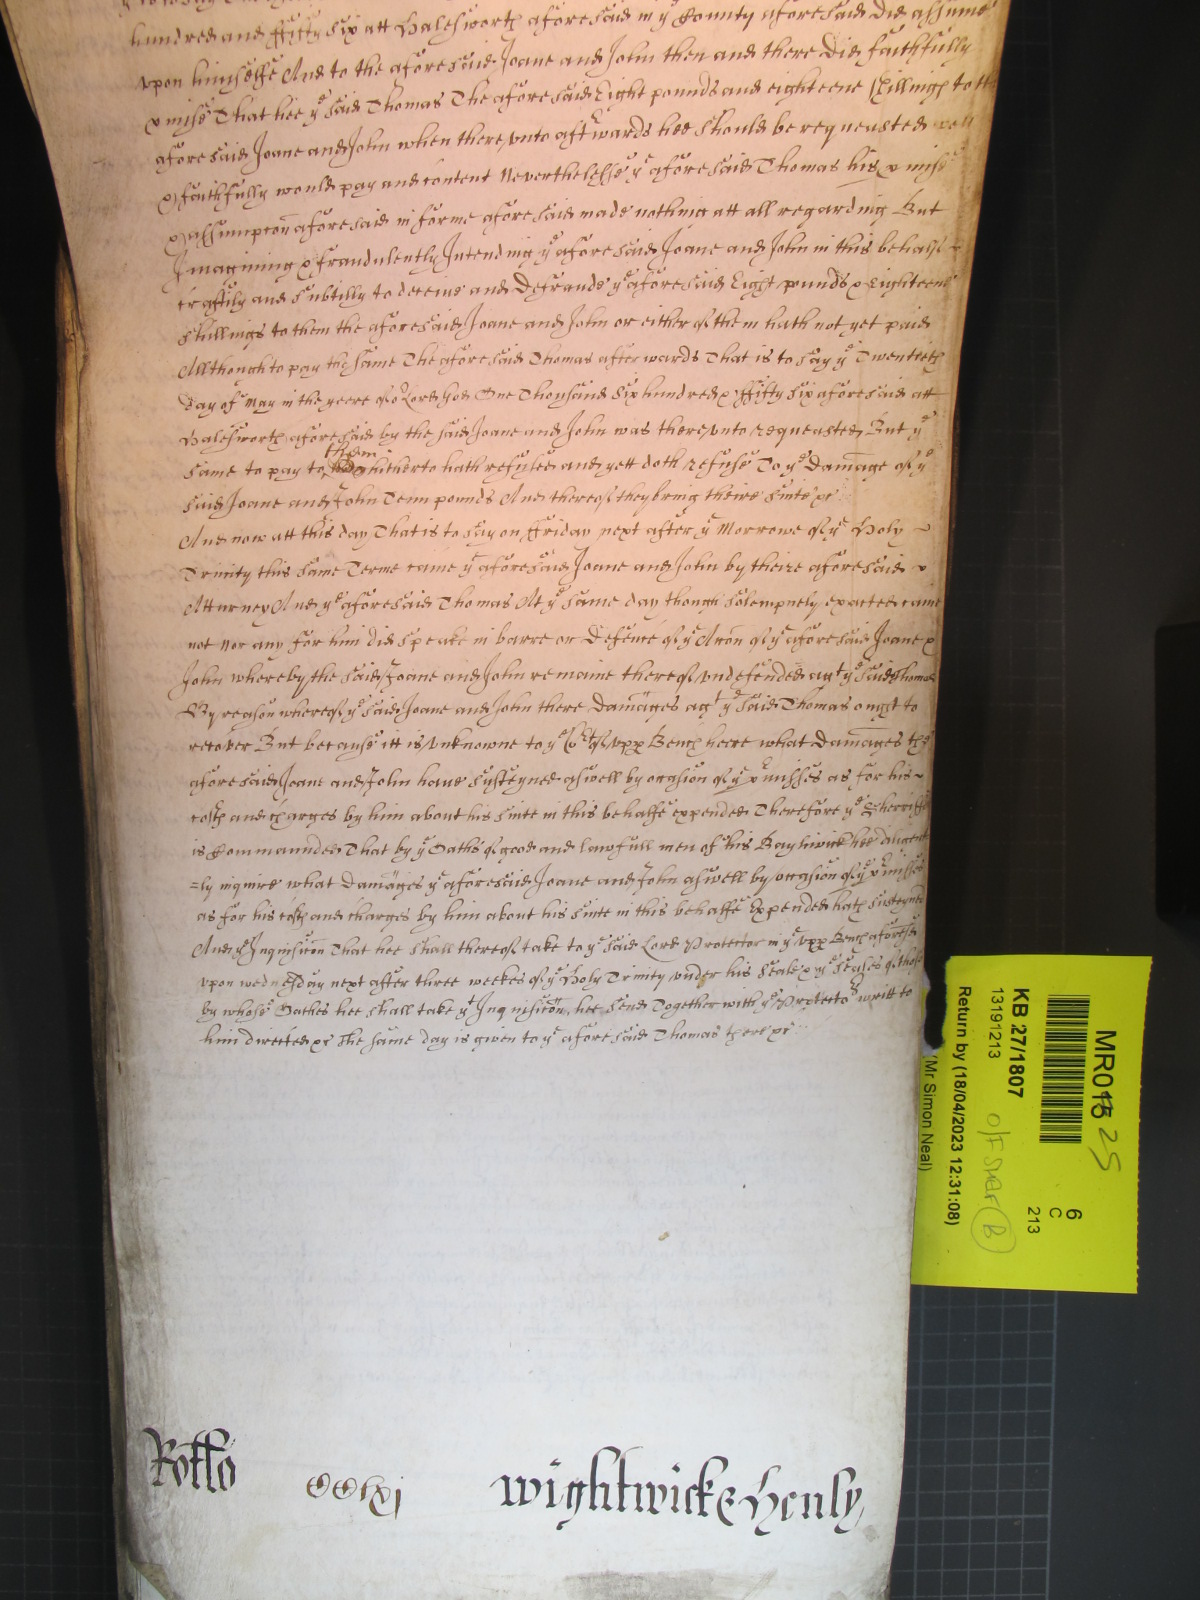 hundred and ffifty six att Halesworth aforesaid in ye County aforesaid did assume
vpon himselfe And to the aforesaid Joane and John then and there did faithfully
pmise That hee ye said Thomas The aforesaid Eight pounds and eighteene Shillings to the
aforesaid Joane and John when there vnto aftrwards hee should be requeasted well
& faithfully would pay and content Neverthelesse ye aforesaid Thomas his pmise
& assumpcon aforesaid in forme aforesaid made nothing att all regarding But
Imagining & fraudulently Intending ye aforesaid Joane and John in this behalfe
craftily and subtilly to deceive and Defraude ye aforesaid Eight pounds & Eighteene
Shillings to them the aforesaid Joane and John or either of them hath not yet paid
Allthough to pay the same The aforesaid Thomas afterwards That is to say ye Twenteth
day of May in the yeere of or Lord God One Thousand Six hundred & ffifty six aforesaid att
Halesworth aforesaid by the said Joane and John was there vnto requeasted But ye
same to pay to them hitherto hath refused and yett doth refuse To ye Damage of ye
said Joane and John Tenn pounds And thereof they bring theire suite &c
And now att this day That is to say on ffriday next after ye Morrowe of ye Holy
Trinity this same Terme came ye aforesaid Joane and John by theire aforesaid
Atturney And ye aforesaid Thomas At ye same day though solempnely exacted came
not Nor any for him did speake in barre or Defence of ye Accon of ye aforesaid Joane &
John whereby the said Joane and John remaine thereof vndefended agt ye said Thomas
By reason whereof ye said Joane and John there damages agt ye said Thomas ought to
recover But because itt is vnknowne to ye Cort of vpp Bench heere what damages the
aforesaid Joane and John have susteyned aswell by occasion of ye pmisses as for his
costs and charges by him about his suite in this behalfe expended Therefore ye Sherriffe
is Commaunded That by ye Oaths of good and lawfull men of his Bayliwick hee diligent
=ly inquire what Damages ye aforesaid Joane and John aswell by occasion of ye pmisses
as for his costs and charges by him about his suite in this behalfe Expended hath susteyned
And ye Inquisicon That hee shall thereof take to ye said Lord Protector in ye vpp Bench aforesd
vpon wednesday next after three weekes of ye Holy Trinity vnder his Seale & ye Seales of those
by whose Oathes hee shall take yt Inquisicon, hee send Together with ye Protectors writt to
him directed &c The same day is given to ye aforesaid Thomas there &c
Rotlo
Wightwicke & Henly
MR0
25
6
C
213
KB 27/1807
13191213
Return by (18/04/2023 12:31:08)
(Mr Simon Neal)